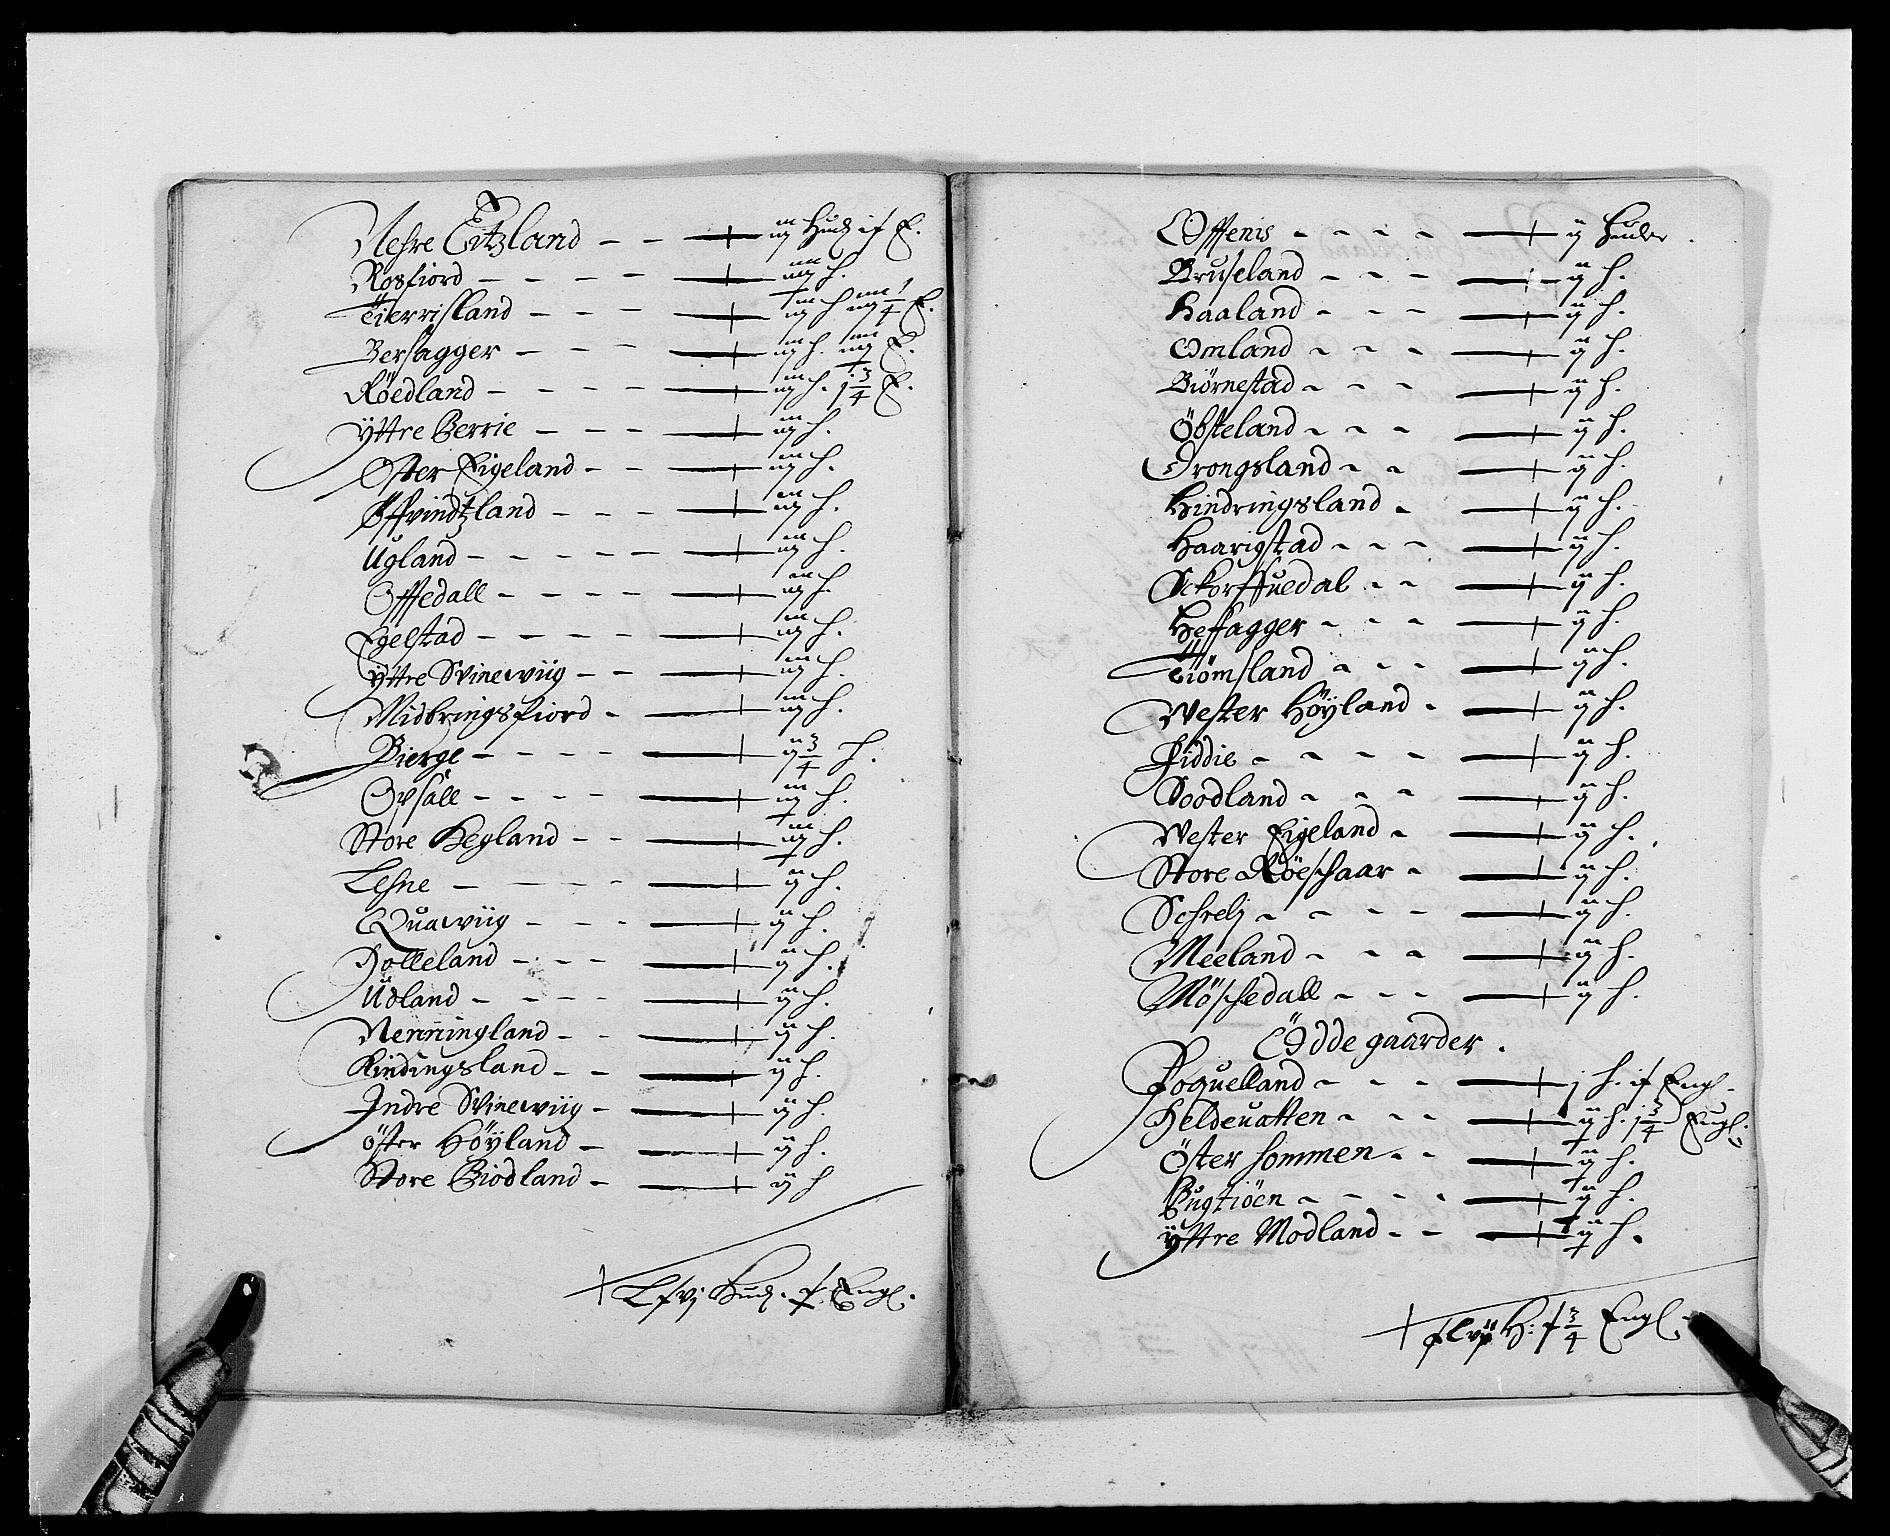 Nehre Eitzland – – iij Hud if E.
Rosfiord – – – – iij h.
Tierrisland – – – iij h iij 1/4 E.
Bersagger – – – iij h. iij E.
Röedland – – – – iij h. j 3/4 E.
Yttre Berrie – – – iij h.
Öster Eigeland – – iij h.
Öffvindtzland – – – iij h.
Ugland – – – – – iij h.
Offedall – – – – iij h.
Egelstad – – – – iij h.
Yttre Svinewiig – – iij h.
Midbringsfiord – iij h.
Bierge – – – – ij 3/4 h.
Opsall – – – – iij h.
Store Hegland – – iij h.
Lehne – – – – ij h.
Quawiig – – – ij h.
Dolleland – – – ij h.
Udland – – – – ij h.
Nenningland – – ij h.
Rindingsland – – ij h.
Indre Svinewiig – ij h.
Öster Höyland – ij h.
Store Biodland – ij h
Hud. Engl.
Offenis – – – – ij Huder.
Bruseland – – – ij h.
Haaland – – – ij h.
Omland – – – ij h.
Biörnestad – – – ij h.
Öbsteland – – – ij h.
Drongsland – – ij h.
Hindringsland – ij h.
Haarigstad – – – ij h.
Schorffuedal – – ij h.
Heffagger – – – ij h.
Tiömsland – – – ij h.
Wester Höyland – ij h.
Fiddie – – – – ij h.
Soodland – – – ij h.
Wester Eigeland – ij h.
Store Röeschaar – ij h.
Schrelj – – – – ij h.
Meeland – – – ij h.
Möschedall – – – ij h.
Ödde gaarder.
Foquelland – – – j h. if Engl.
Heldeuatten – – – ij h. j 3/4 Engl.
Öster Hommen – – ij h.
Bugtiöen – – – – ij h.
Yttre Modland – – ij h.
H: 3/4 Engl.